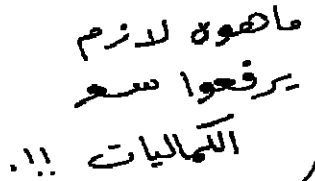 ماهوه لازم
يرفعوا سعر
الكماليات !!.